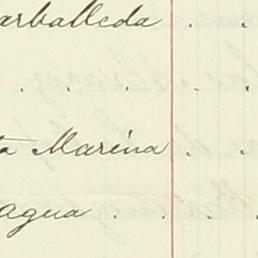 arballeda . .
. . . . .
ta Marina . .
agua . . . .